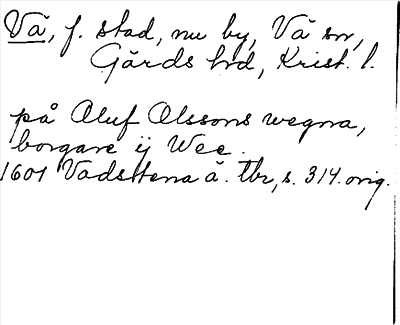 Vä, f. stad, nu by, Vä sn,
Gärds hd, Krist. l.
på Aluf Alssons wegna,
borgare ij Wee.
1601 Vadstena ä. tbr, s. 314. orig.